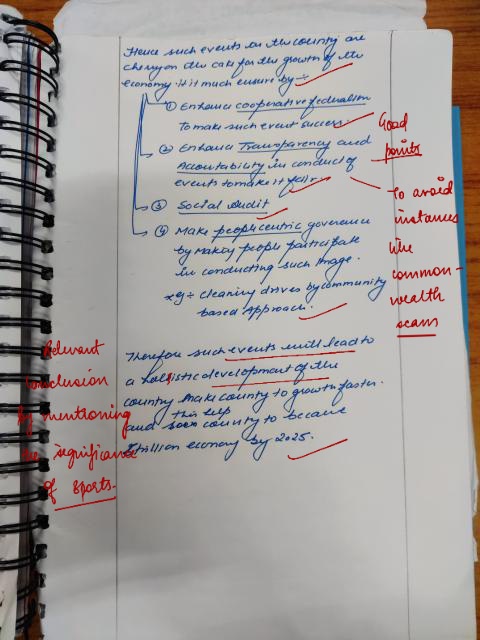 Hence such events in the country are
cherry on the cake for the growth of the
economy it it much ensure by :-
① Enhance cooperative federalism
To make such event success.
② Enhance Transparency and
Accountability in conduct of
events to make it fair.
③ Social Audit
④ Make people centric governance
by making people participate
in conducting such image.
eg :- cleaning drives by community
based Approach.
Good
points
To avoid
instances
like
common-
wealth
scam
Therefore such events will lead to
a holistic development of the
country make county to growth faster.
and this help
county to became
trillion economy by 2025.
Relevant
conclusion
by mentioning
the significance
of sports.